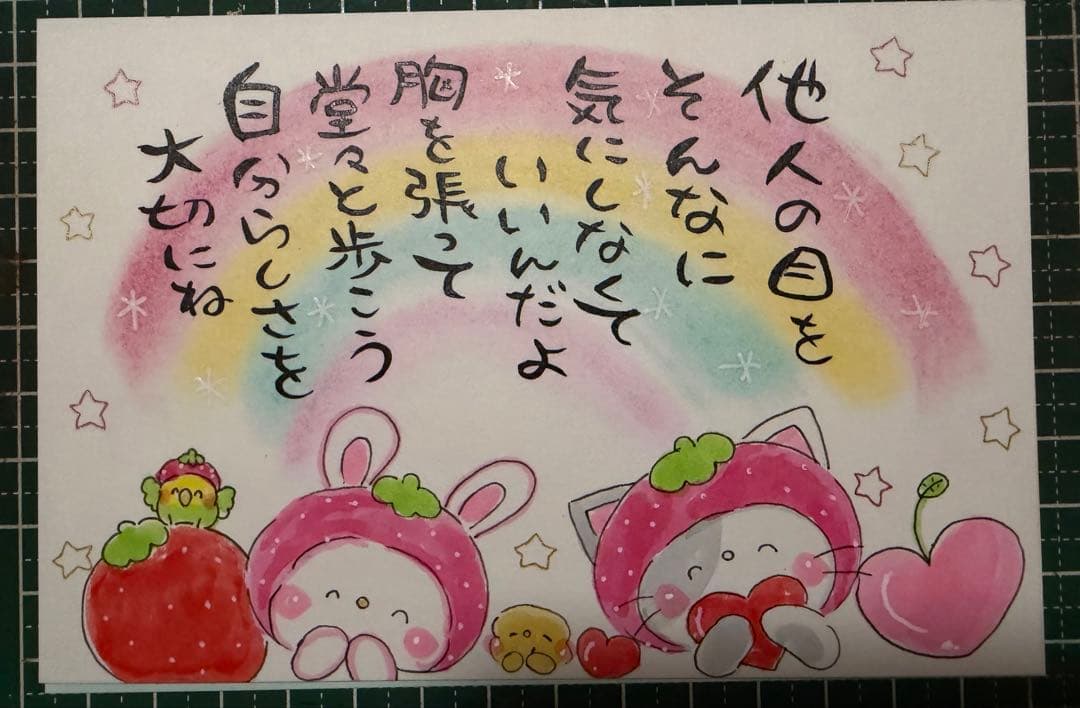 他人の目を
そんなに
気にしなくて
いいんだよ
胸を張って
堂々と歩こう
自分らしさを
大切にね